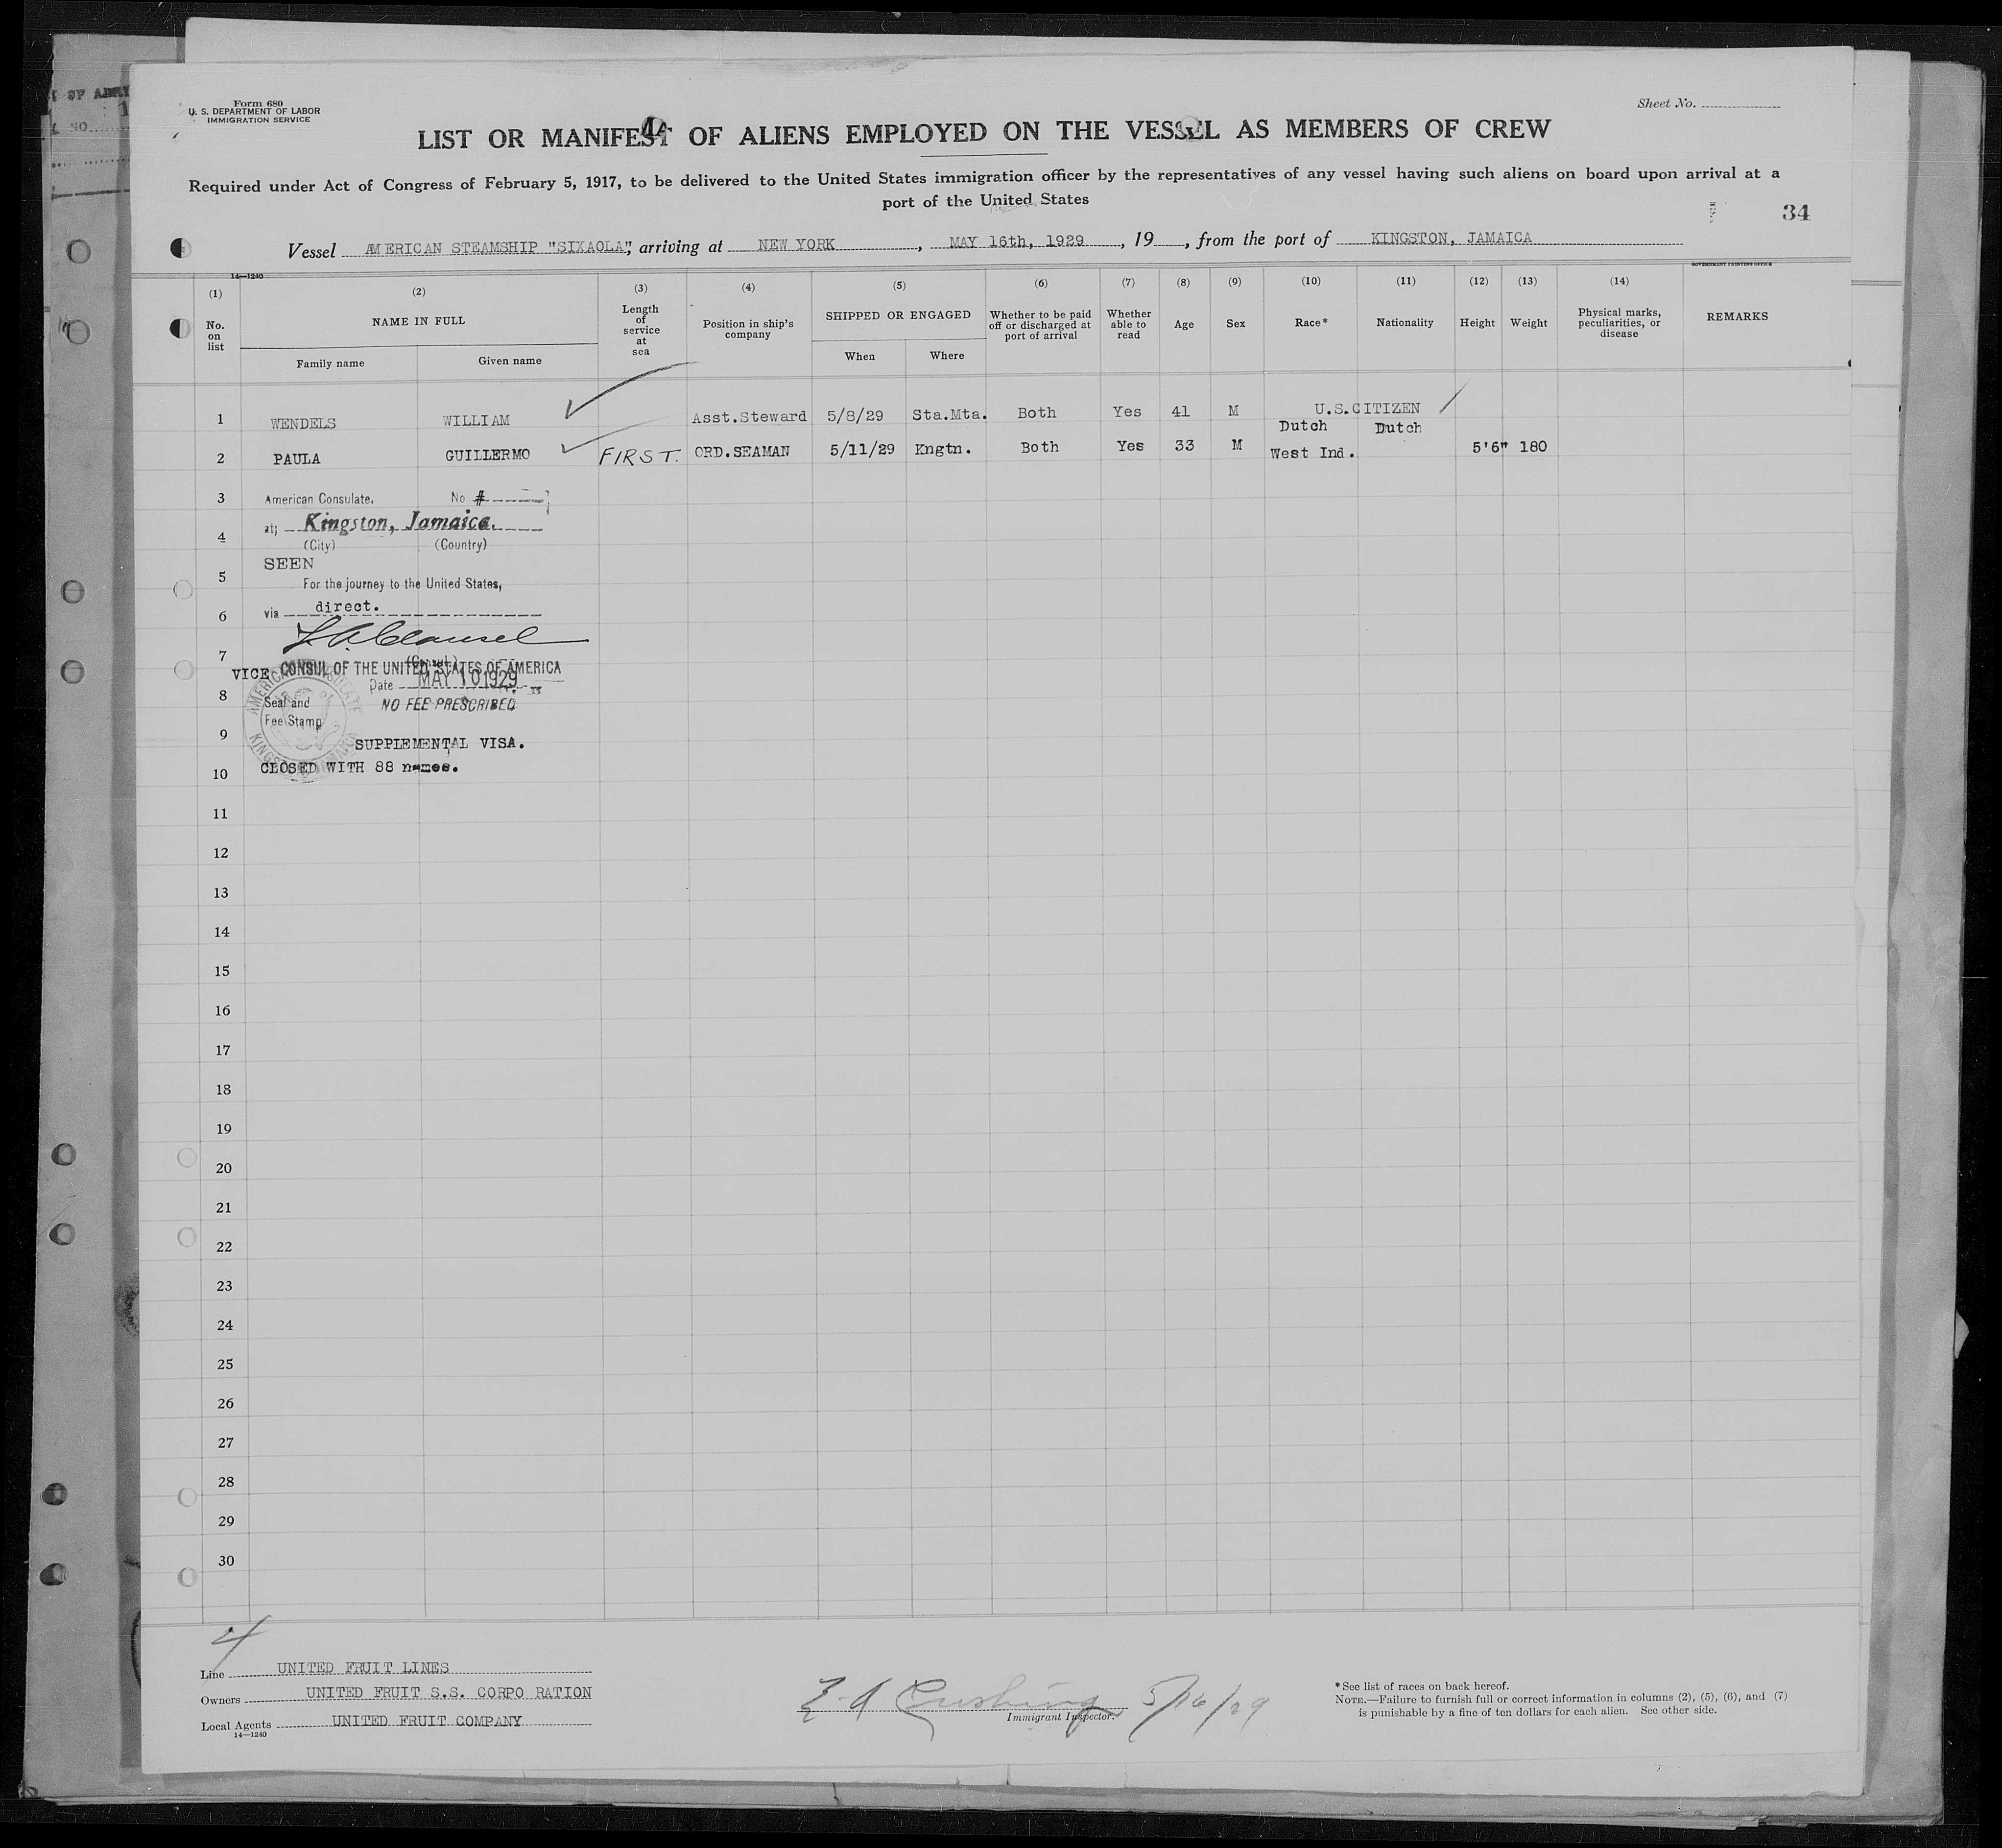 OF ARRIV
NO
Form 680
U. S. DEPARTMENT OF LABOR
IMMIGRATION SERVICE
Sheet No.
LIST OR MANIFEST OF ALIENS EMPLOYED ON THE VESSEL AS MEMBERS OF CREW
Required under Act of Congress of February 5, 1917, to be delivered to the United States immigration officer by the representatives of any vessel having such aliens on board upon arrival at a
port of the United States
34
Vessel AMERICAN STEAMSHIP "SIXAOLA", arriving at NEW YORK, MAY 16th, 1929, 19, from the port of KINGSTON, JAMAICA
14—1240
GOVERNMENT PRINTING OFFICE
(1) (2) (3) (4) (5) (6) (7) (8) (9) (10) (11) (12) (13) (14)
No. on list
NAME IN FULL
Family name Given name
Length of service at sea
Position in ship's company
SHIPPED OR ENGAGED
When Where
Whether to be paid off or discharged at port of arrival
Whether able to read
Age
Sex
Race*
Nationality
Height
Weight
Physical marks, peculiarities, or disease
REMARKS
1 WENDELS WILLIAM Asst.Steward 5/8/29 Sta.Mta. Both Yes 41 M U.S.CITIZEN
2 PAULA GUILLERMO FIRST. ORD.SEAMAN 5/11/29 Kngtn. Both Yes 33 M Dutch West Ind. Dutch 5'6" 180
3 American Consulate, No #
4 at; Kingston, Jamaica.
(City) (Country)
SEEN
5 For the journey to the United States,
6 via direct.
7
VICE CONSUL OF THE UNITED STATES OF AMERICA
Date MAY 10 1929
8 Seal and NO FEE PRESCRIBED
Fee Stamp
AMERICAN CONSULATE KINGSTON JAMAICA
9 SUPPLEMENTAL VISA.
10 CLOSED WITH 88 names.
11
12
13
14
15
16
17
18
19
20
21
22
23
24
25
26
27
28
29
30
4
Line UNITED FRUIT LINES
Owners UNITED FRUIT S.S. CORPO RATION
Local Agents UNITED FRUIT COMPANY
14—1240
Cushing 5/16/29
Immigrant Inspector.
* See list of races on back hereof.
NOTE.—Failure to furnish full or correct information in columns (2), (5), (6), and (7)
is punishable by a fine of ten dollars for each alien. See other side.